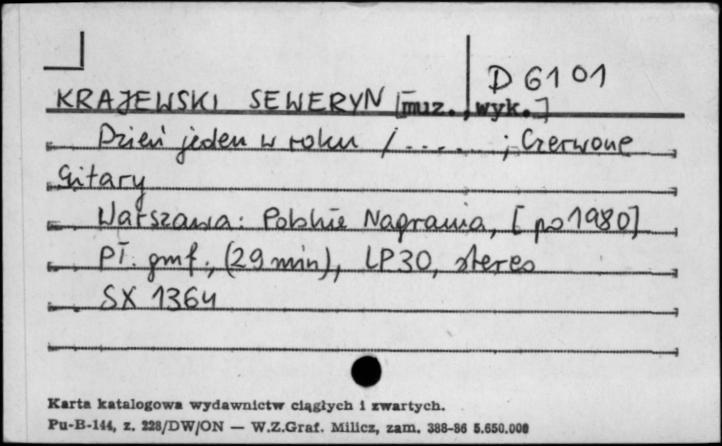 D 6101
KRAJEWSKI SEWERYN [muz., wyk.]
Dzień jeden w roku / ...... ; Czerwone
Gitary
Warszawa: Polskie Nagrania, [po 1980]
Pł. gmf., (29 min), LP30, stereo
SX 1364
Karta katalogowa wydawnictw ciągłych i zwartych.
Pu-B-144, z. 228/DW/ON — W.Z.Graf. Milicz, zam. 388-86 5.650.000